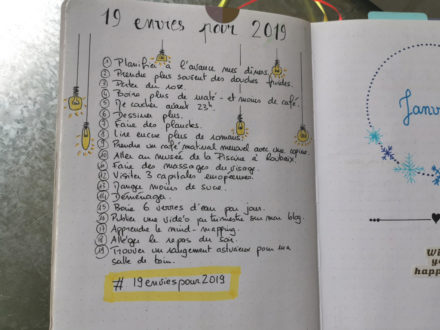 19 envies pour 2019
① Planifier à l'avance mes dîners.
② Prendre plus souvent des douches froides.
③ Porter du rose.
④ Boire plus de maté - et moins de café.
⑤ Me coucher avant 23h.
⑥ Dessiner plus.
⑦ Faire des planches.
⑧ Lire encore plus de romans.
⑨ Prendre un café matinal mensuel avec une copine.
⑩ Aller au musée de la Piscine à Roubaix.
⑪ Faire des massages du visage.
⑫ Visiter 3 capitales européennes.
⑬ Manger moins de sucre.
⑭ Déménager.
⑮ Boire 6 verres d'eau par jour.
⑯ Publier une vidéo par trimestre sur mon blog.
⑰ Apprendre le mind-mapping.
⑱ Alléger le repas du soir.
⑲ Trouver un rangement astucieux pour ma
salle de bain.
# 19enviespour2019
Janv